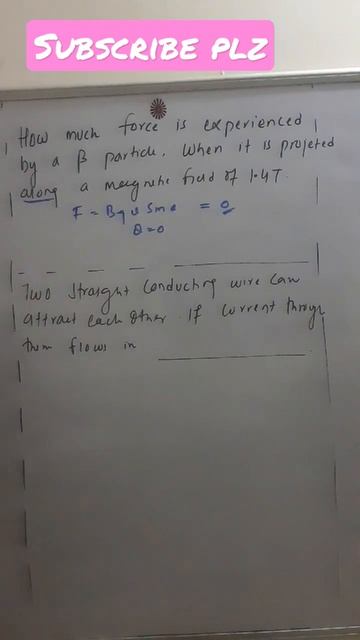 SUBSCRIBE PLZ
How much force is experienced
by a β particle. When it is projeted
along a magnetic field of 1.4T.
F = Bqv Sinθ = 0
θ=0
Two Straight Conducting wire can
attract each other. If current throug
them flows in ___________